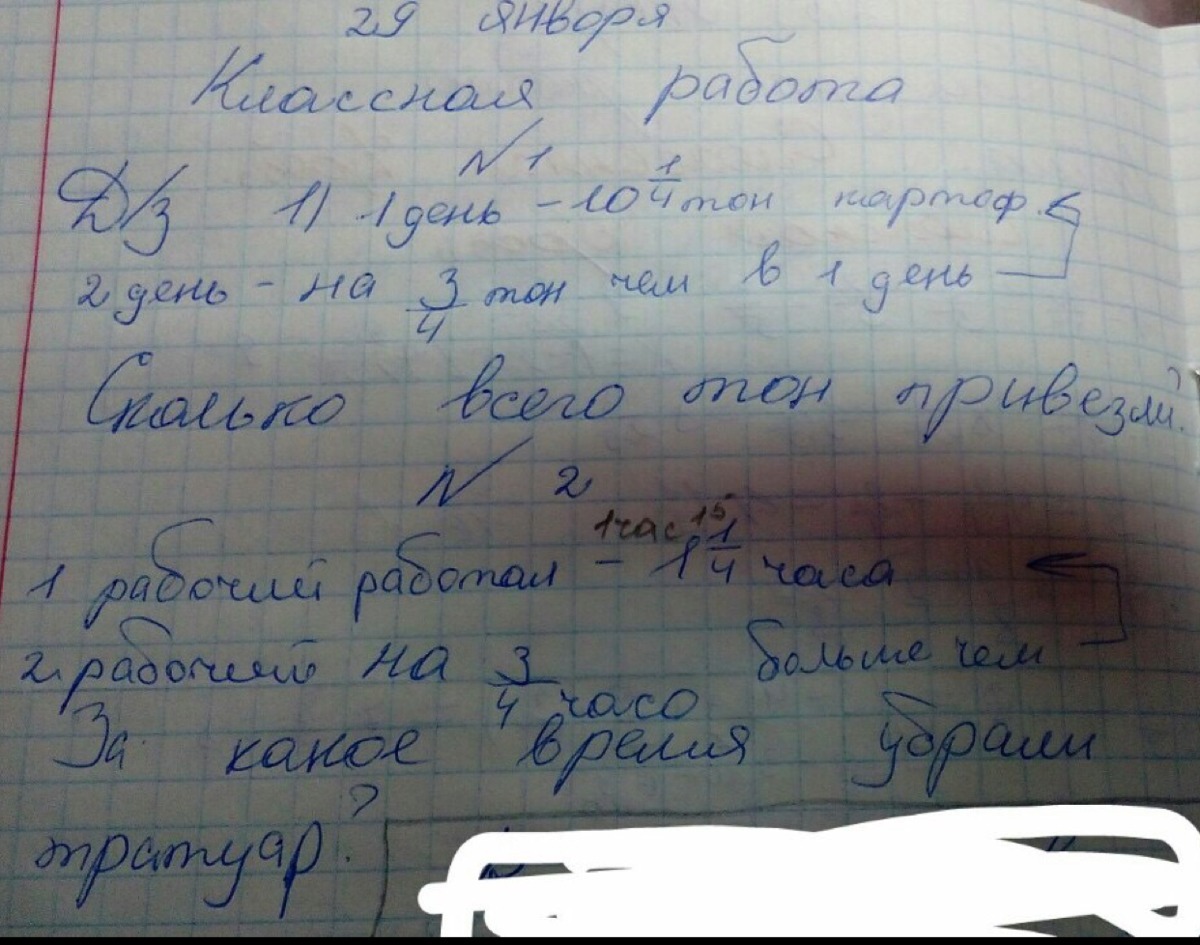 29 января
Классная работа
№ 1
Д/з 1) 1 день - 10 1/4 тон картоф.
2 день - на 3/4 тон чем в 1 день
Сколько всего тон привезли?
№ 2
1 час 15
1 рабочий работал - 1 1/4 часа
2 рабочий на 3/4 часо больше чем
За какое время убрали
тратуар?